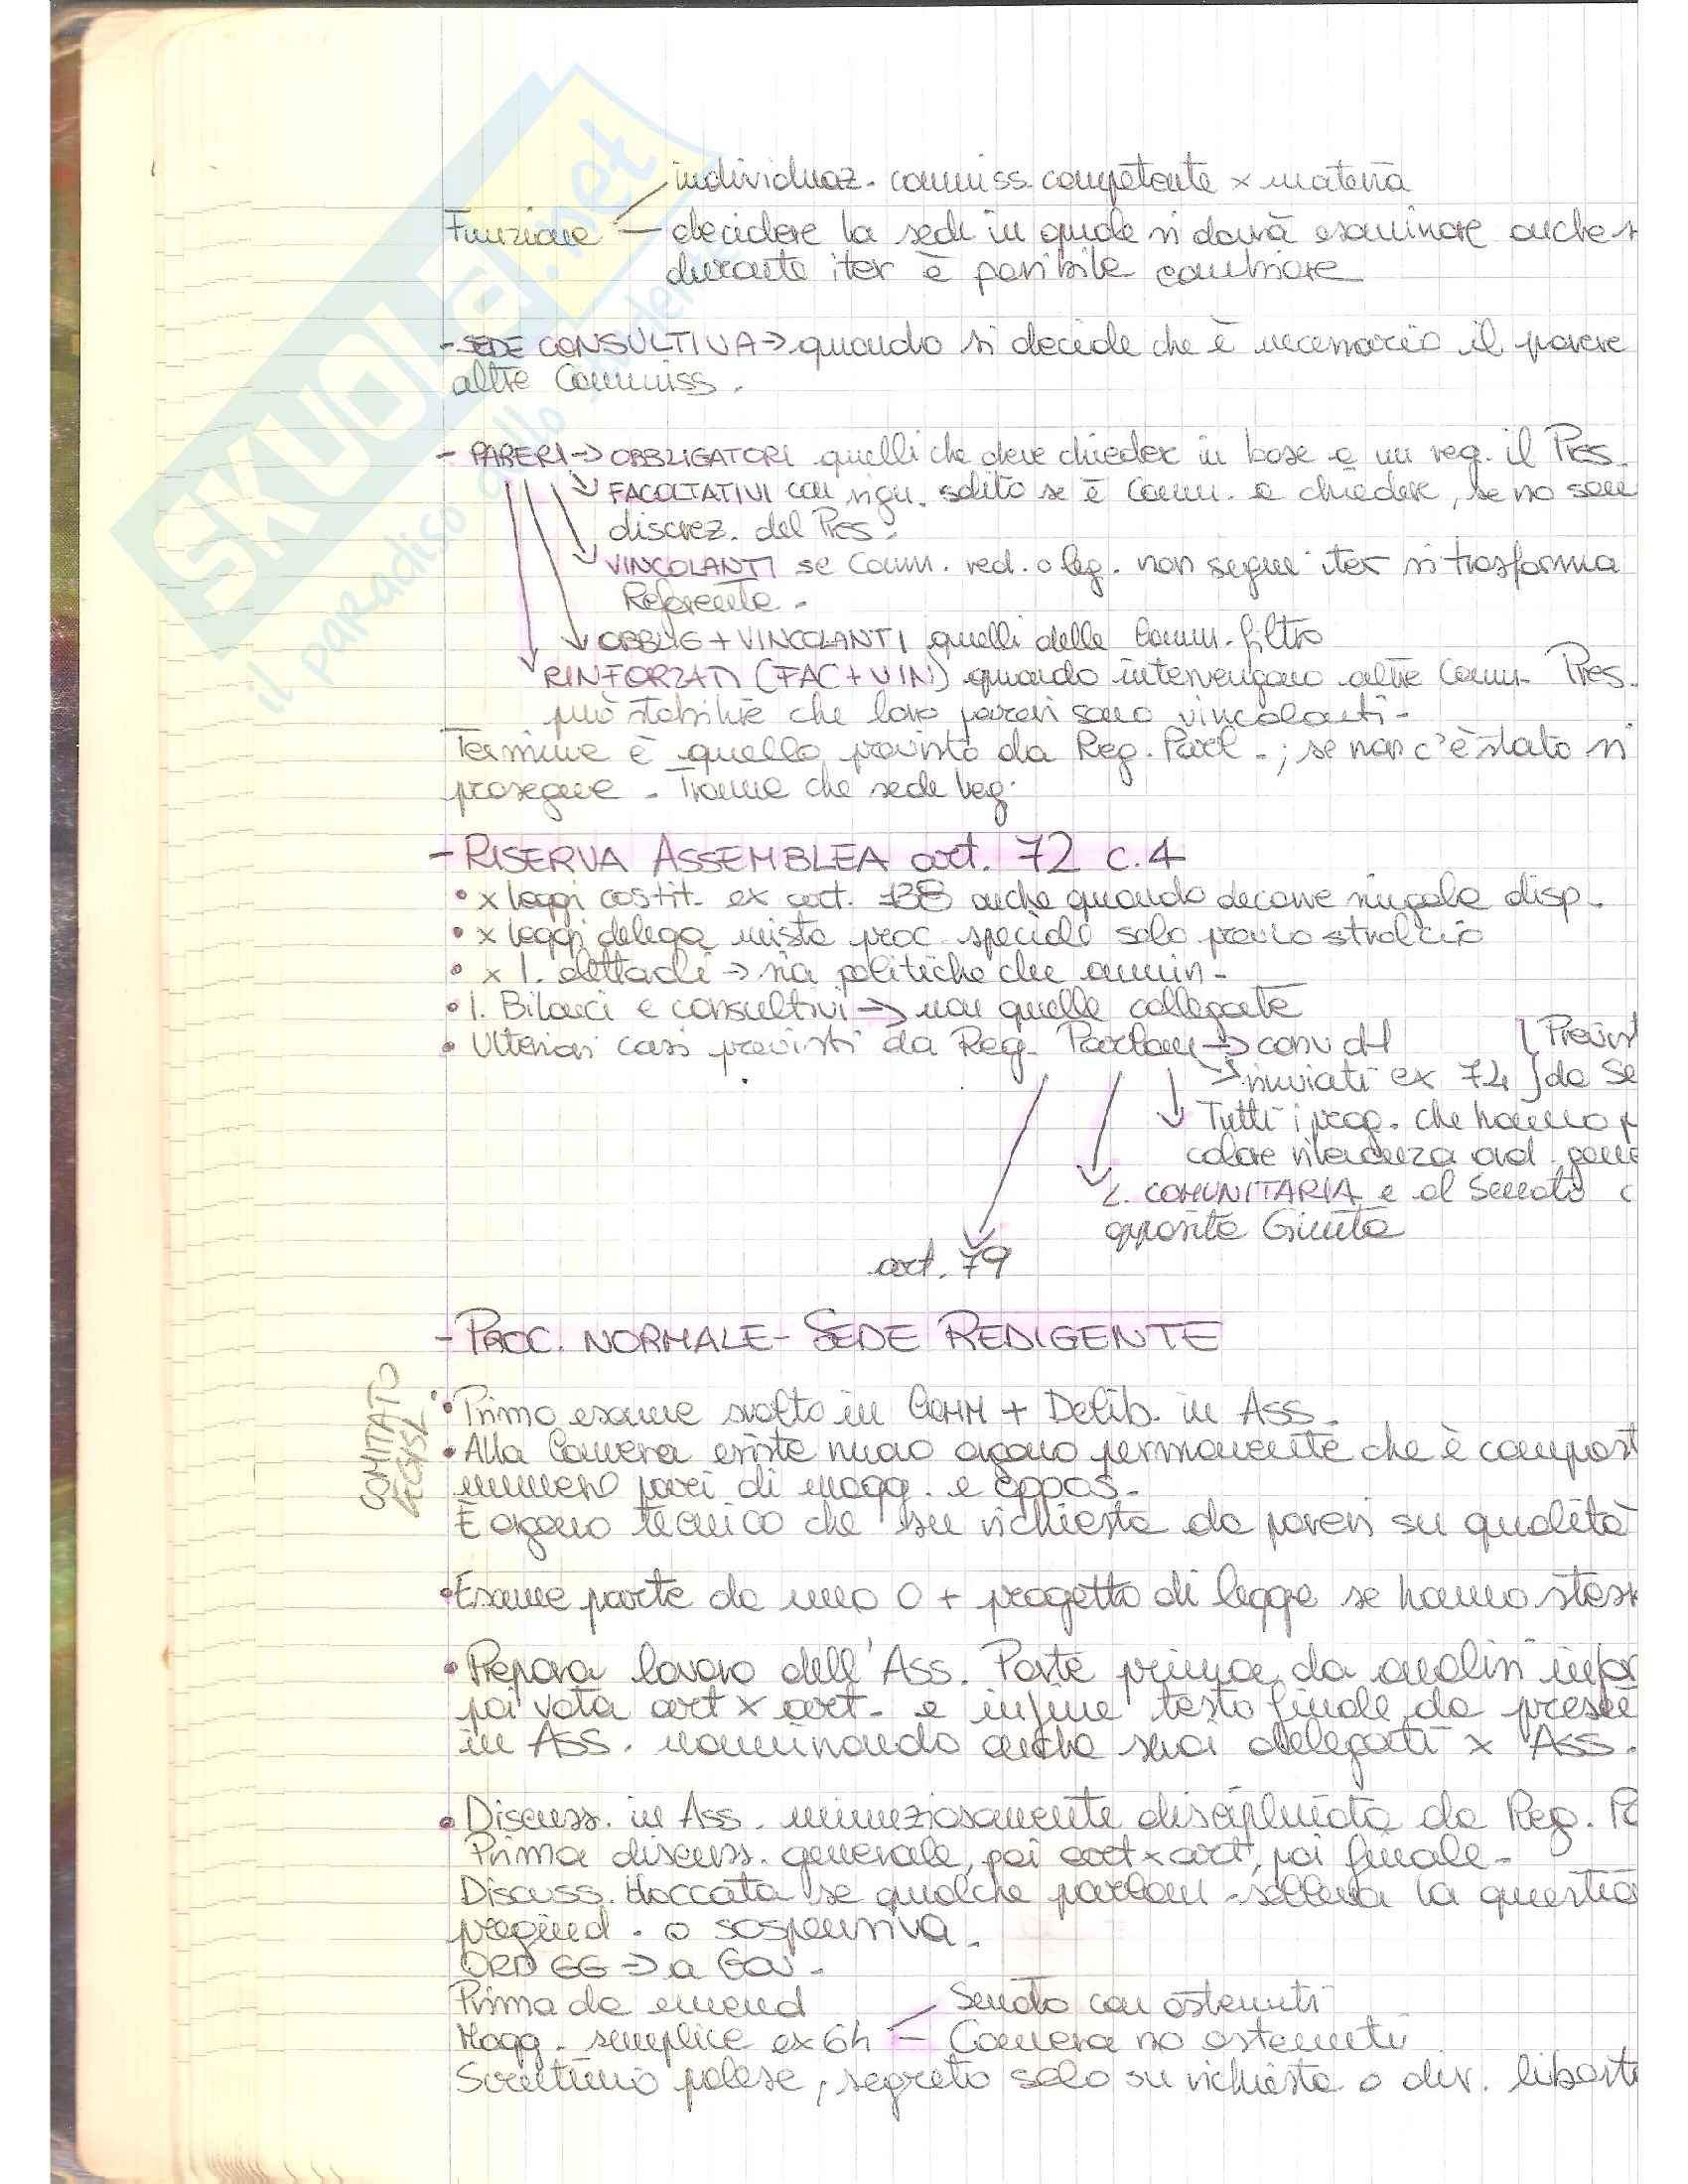 individuaz. commiss. competente x materia
Funzione — decidere la sede in quale si dovrà esaminare anche
durante iter è possibile cambiare
- SEDE CONSULTIVA → quando si decide che è necessario il parere
altre Commiss.
- PARERI → OBBLIGATORI quelli che deve chieder in base a un reg. il Pres.
FACOLTATIVI con sign. solito se è Comm. a chiedere, se no
discrez. del Pres.
VINCOLANTI se Comm. red. o leg. non segue iter si trasforma
Referente.
OBBLIG + VINCOLANTI quelli delle Comm. filtro
RINFORZATI (FAC + VIN) quando intervengono altre Comm. Pres.
può stabilire che loro pareri sono vincolanti.
Termine è quello previsto da Reg. Parl.; se non c'è stato si
prosegue. Tranne che sede leg.
- RISERVA ASSEMBLEA art. 72 c.4
• x leggi costit. ex art. 138 anche quando singole disp.
• x leggi delega miste proc. speciale solo previo stralcio
• x l. elettorali → sia politiche che ammin.
• l. Bilanci e consultivi → non quelle collegate
• Ulteriori casi previsti da Reg. Parlam → conv dl } Previst
rinviati ex 74 } da Se
Tutti i prog. che hanno
colare rilevanza ord. gene
L. COMUNITARIA e al Senato
apposita Giunta
art. 79
- PROC. NORMALE - SEDE REDIGENTE
COMITATO
LEGISL
• Primo esame svolto in COMM + Delib. in ASS.
• Alla Camera esiste nuovo organo permanente che è compost
numero pari di magg. e oppos.
È organo tecnico che su richiesta da pareri su qualità
• Esame parte da uno o + progetto di legge se hanno stess
• Prepara lavoro dell'Ass. Parte prima da analisi infor
poi vota art x art. e infine testo finale da presen
in ASS. nominando anche suoi delegati x ASS.
• Discuss. in Ass. minuziosamente disciplinata da Reg. Pa
Prima discuss. generale, poi art x art, poi finale.
Discuss. bloccata se qualche parlam. solleva la questio
pregiud. o sospensiva.
ORD GG → a Gov.
Prima da emend
Magg. semplice ex 64 — Senato con astenuti
— Camera no astenuti
Scrutinio palese, segreto solo su richiesta o dir. libert